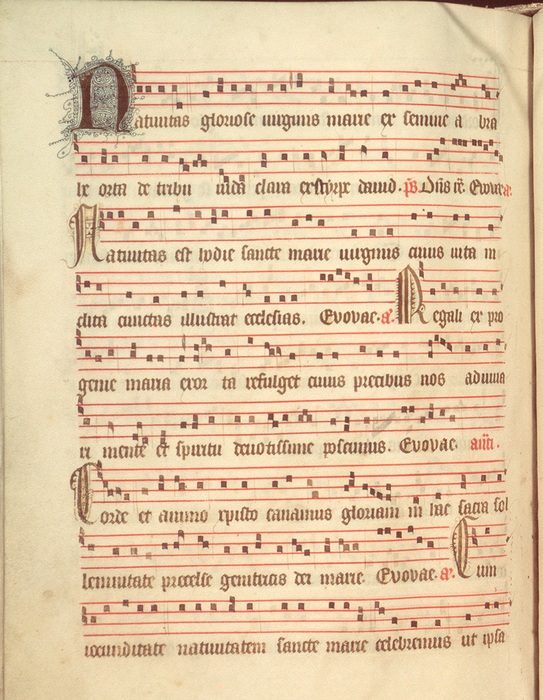 Natiuitas gloriose uirginis marie ex semine a bra
he orta de tribu iuda clara ex styrpe dauid. ps. Dns re. Evovae a.
Natiuitas est hodie sancte marie uirginis cuius uita in
clita cunctas illustrat ecclesias. Evovae. a. Regali ex pro
genie maria exor ta refulget cuius precibus nos adiuua
ri mente et spiritu deuotissime poscimus. Evovae. an.
Corde et animo xpisto canamus gloriam in hac sacra sol
lempnitate precelse genitricis dei marie. Evovae. a. Cum
iocunditate natiuitatem sancte marie celebremus ut ipsa